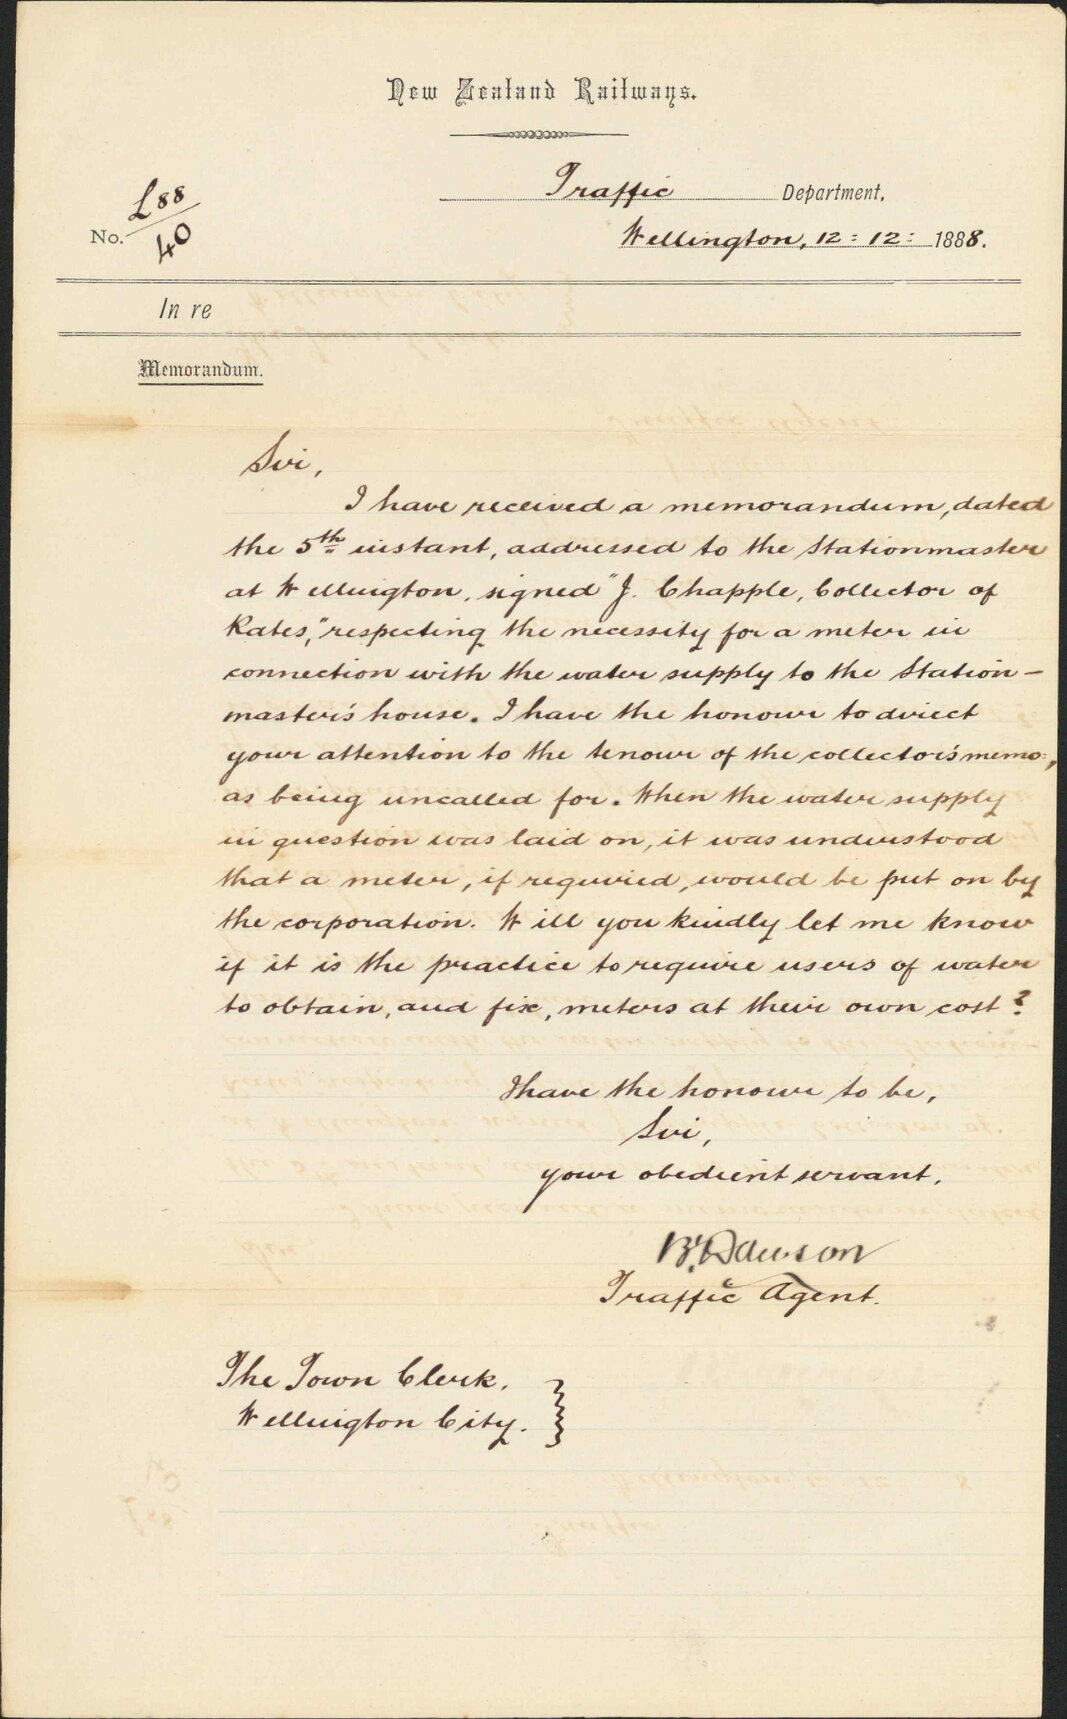 New Zealand Railways.
Traffic Department.
No. L88/40
Wellington, 12:12: 1888.
In re
Memorandum.
Sir,
I have received a memorandum, dated
the 5th instant, addressed to the Stationmaster
at Wellington, signed "J. Chapple, Collector of
Rates," respecting the necessity for a meter in
connection with the water supply to the Station-
master's house. I have the honour to direct
your attention to the tenour of the collector's memo:,
as being uncalled for. When the water supply
in question was laid on, it was understood
that a meter, if required, would be put on by
the corporation. Will you kindly let me know
if it is the practice to require users of water
to obtain, and fix, meters at their own cost?
I have the honour to be,
Sir,
your obedient servant,
Dawson
Traffic Agent.
The Town Clerk,
Wellington City.